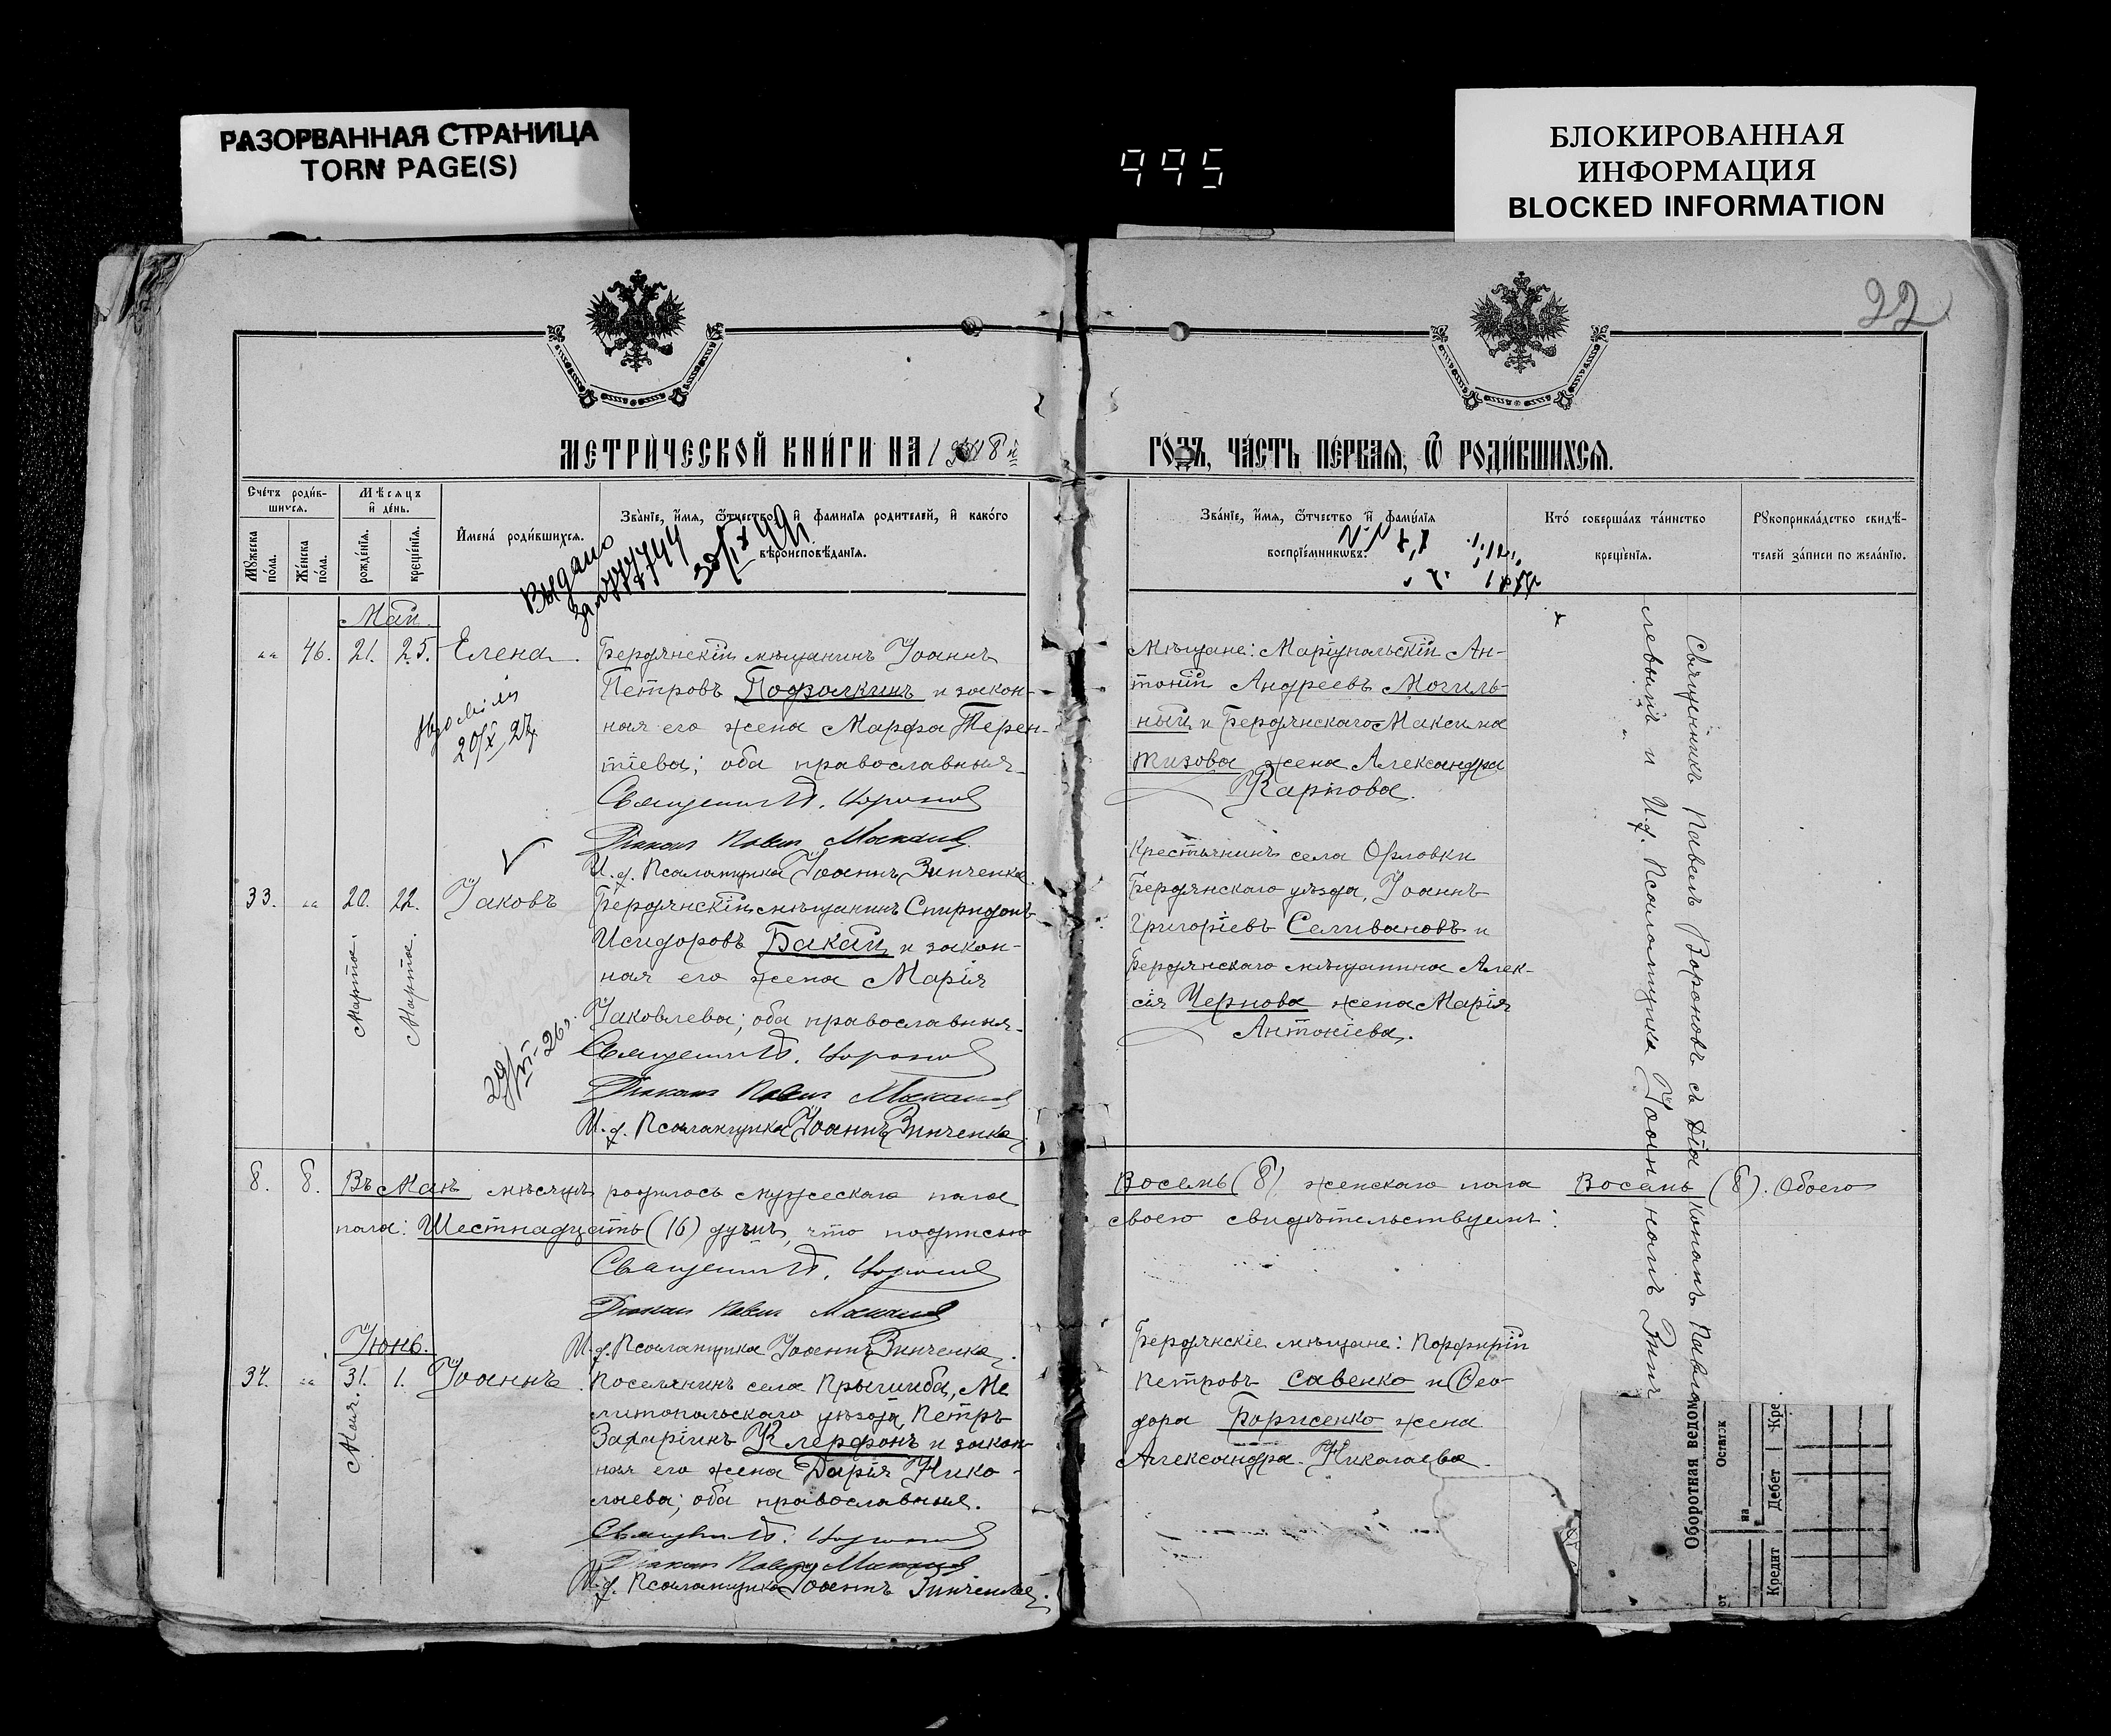 РАЗОРВАННАЯ СТРАНИЦА
TORN PAGE(S)
995
БЛОКИРОВАННАЯ
ИНФОРМАЦИЯ
BLOCKED INFORMATION
22
МЕТРИЧЕСКОЙ КНИГИ НА 1918 й
ГОДЪ, ЧАСТЬ ПЕРВАЯ, Ѿ РОДИВШИХСЯ.
Счетъ родив-
шихся.
Мужеска
пола.
Женска
пола.
Мѣсяцъ
и день.
рожденія.
крещенія.
Имена родившихся.
Званіе, имя, ѿчество и фамилія родителей, и какого
вѣроисповѣданія.
Званіе, имя, ѿчество и фамилія
воспріемниковъ.
Кто совершалъ таинство
крещенія.
Рукоприкладство свидѣ-
телей записи по желанію.
Выдано
Май.
"" 46. 21. 25. Елена.
Бердянскій мѣщанинъ Іоаннъ
Петровъ Подолкинъ и закон-
ная его жена Марфа Терен-
тіева; оба православныя.
Священникъ П. Вороновъ
Діаконъ Павелъ
И. д. Псаломщика Іоаннъ Зинченко
20/X 27
Мѣщане: Маріупольскій Ан-
тоній Андреевъ Могиль-
ный и Бердянскаго Максима
Жизова жена Александра
Карпова.
33. "" 20. 22. Іаковъ
Марта.
Марта.
29/VI-26 г.
Бердянскій мѣщанинъ Спиридонъ
Исидоровъ Бакай и закон-
ная его жена Марія
Іаковлева; оба православныя.
Священникъ П. Вороновъ
Діаконъ Павелъ
И. д. Псаломщика Іоаннъ Зинченко
Крестьянинъ села Орловки
Бердянскаго уѣзда, Іоаннъ
Григоріевъ Селивановъ и
Бердянскаго мѣщанина Алек-
сія Чернова жена Марія
Антоніева.
Священникъ Павелъ Вороновъ съ Діакономъ Павломъ
и И. д. Псаломщика Іоанномъ Зинч
8. 8. Въ Маѣ мѣсяцѣ родилось мужескаго пола Восемь (8) женскаго пола Восемь (8). Обоего
пола: Шестнадцать (16) душъ, что подписью своею свидѣтельствуемъ:
Священникъ П. Вороновъ
Діаконъ Павелъ
И. д. Псаломщика Іоаннъ Зинченко
Іюнь.
34. "" 31. 1. Іоаннъ.
Мая.
Поселянинъ села Пришиба, Ме
литопольскаго уѣзда, Петръ
Захаріинъ Клерфонъ и закон-
ная его жена Дарія Нико-
лаева; оба православныя.
Священникъ П. Вороновъ
Діаконъ Павелъ
И. д. Псаломщика Іоаннъ Зинченко.
Бердянскіе мѣщане: Порфирій
Петровъ Савенко и Ѳео-
дора Борисенко жена
Александра Николаева.
Оборотная ведом
Остаток
на
Кре
Дебет
Кредит
от